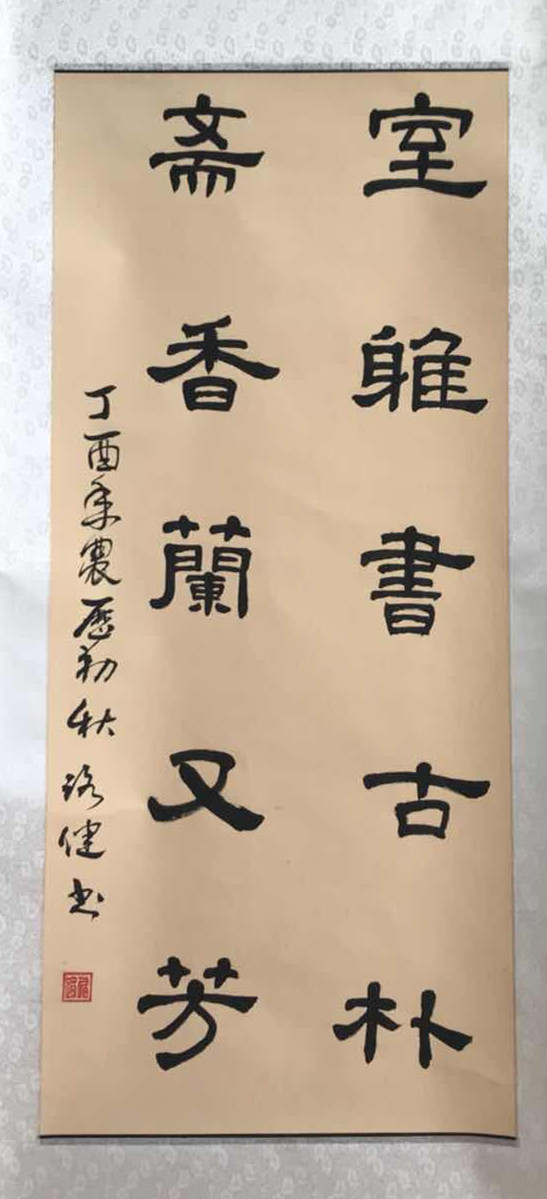 室雅書古朴
斋香蘭又芳
丁酉年農歷初秋 路健书